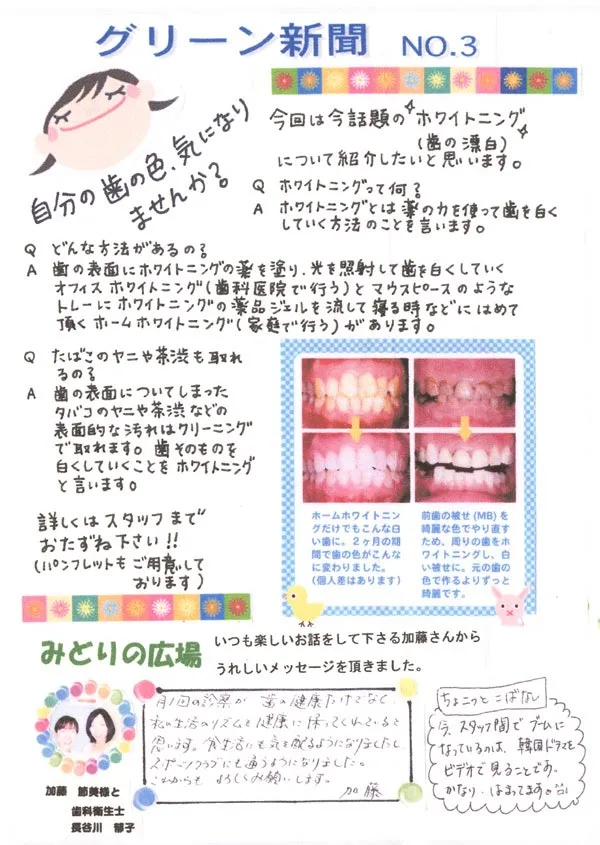 グリーン新聞 NO.3
自分の歯の色、気になり
ませんか?
今回は今話題の ホワイトニング
(歯の漂白)
について紹介したいと思います。
Q ホワイトニングって何?
A ホワイトニングとは薬の力を使って歯を白く
していく方法のことを言います。
Q どんな方法があるの?
A 歯の表面にホワイトニングの薬を塗り、光を照射して歯を白くしていく
オフィスホワイトニング(歯科医院で行う)とマウスピースのような
トレーにホワイトニングの薬品ジェルを流して寝る時などにはめて
頂くホームホワイトニング(家庭で行う)があります。
Q たばこのヤニや茶渋も取れ
るの?
A 歯の表面についてしまった
タバコのヤニや茶渋などの
表面的な汚れはクリーニング
で取れます。歯そのものを
白くしていくことをホワイトニング
と言います。
詳しくはスタッフまで
おたずね下さい!!
(パンフレットもご用意して
おります)
ホームホワイトニン
グだけでもこんな白
い歯に。2ヶ月の期
間で歯の色がこんな
に変わりました。
(個人差はあります)
前歯の被せ(MB)を
綺麗な色でやり直す
ため、周りの歯をホ
ワイトニングし、白
い被せに。元の歯の
色で作るよりずっと
綺麗です。
みどりの広場
いつも楽しいお話をして下さる加藤さんから
うれしいメッセージを頂きました。
加藤 節美様と
歯科衛生士
長谷川 郁子
月1回の診察が 歯の健康だけでなく
私の生活のリズムを健康に保ってくれていると
思います。食生活にも気を配るようになりましたし
スポーツクラブにも通うようになりました。
これからも よろしくお願いします。
加藤
ちょこっと こばなし
今、スタッフ間でブームに
なっているのは、韓国ドラマを
ビデオで見ることです。
かなり、はまってます。